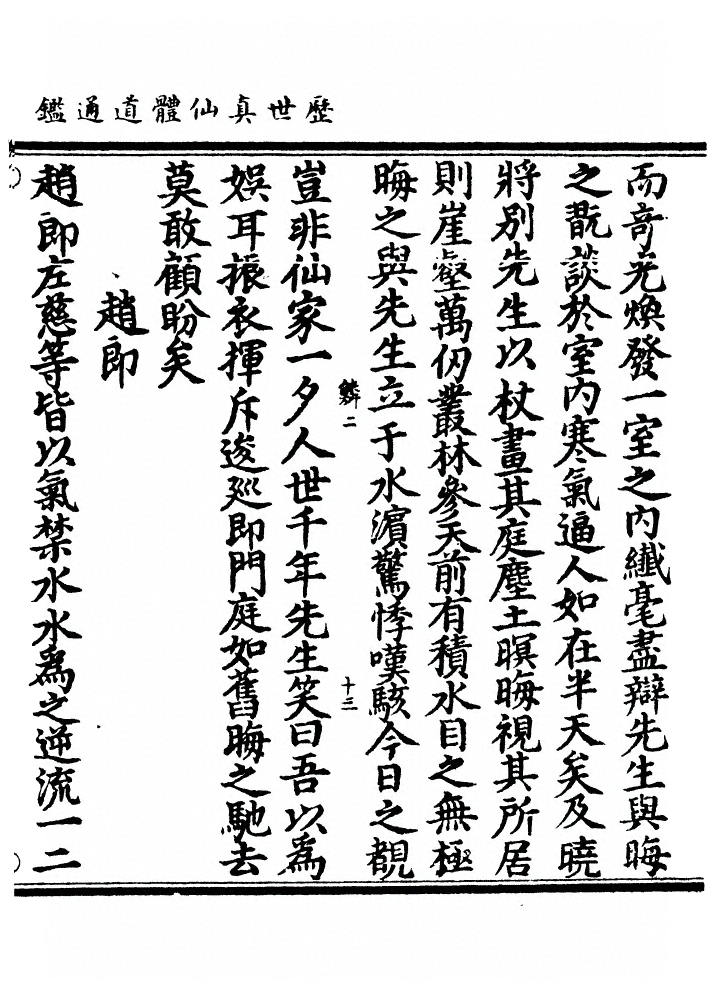 歷世真仙體道通鑑
而奇光煥發一室之內纖毫盡辯先生與晦
之翫談於室內寒氣逼人如在半天矣及曉
將別先生以杖畫其庭塵土暝晦視其所居
則崖壑萬仞叢林參天前有積水目之無極
晦之與先生立于水濵驚悸嘆駭今日之覩
鱗二
十三
豈非仙家一夕人世千年先生笑曰吾以為
娛耳振衣揮斥逡巡即門庭如舊晦之馳去
莫敢顧盼矣
趙郎
趙郎左慈等皆以氣禁水水為之逆流一二